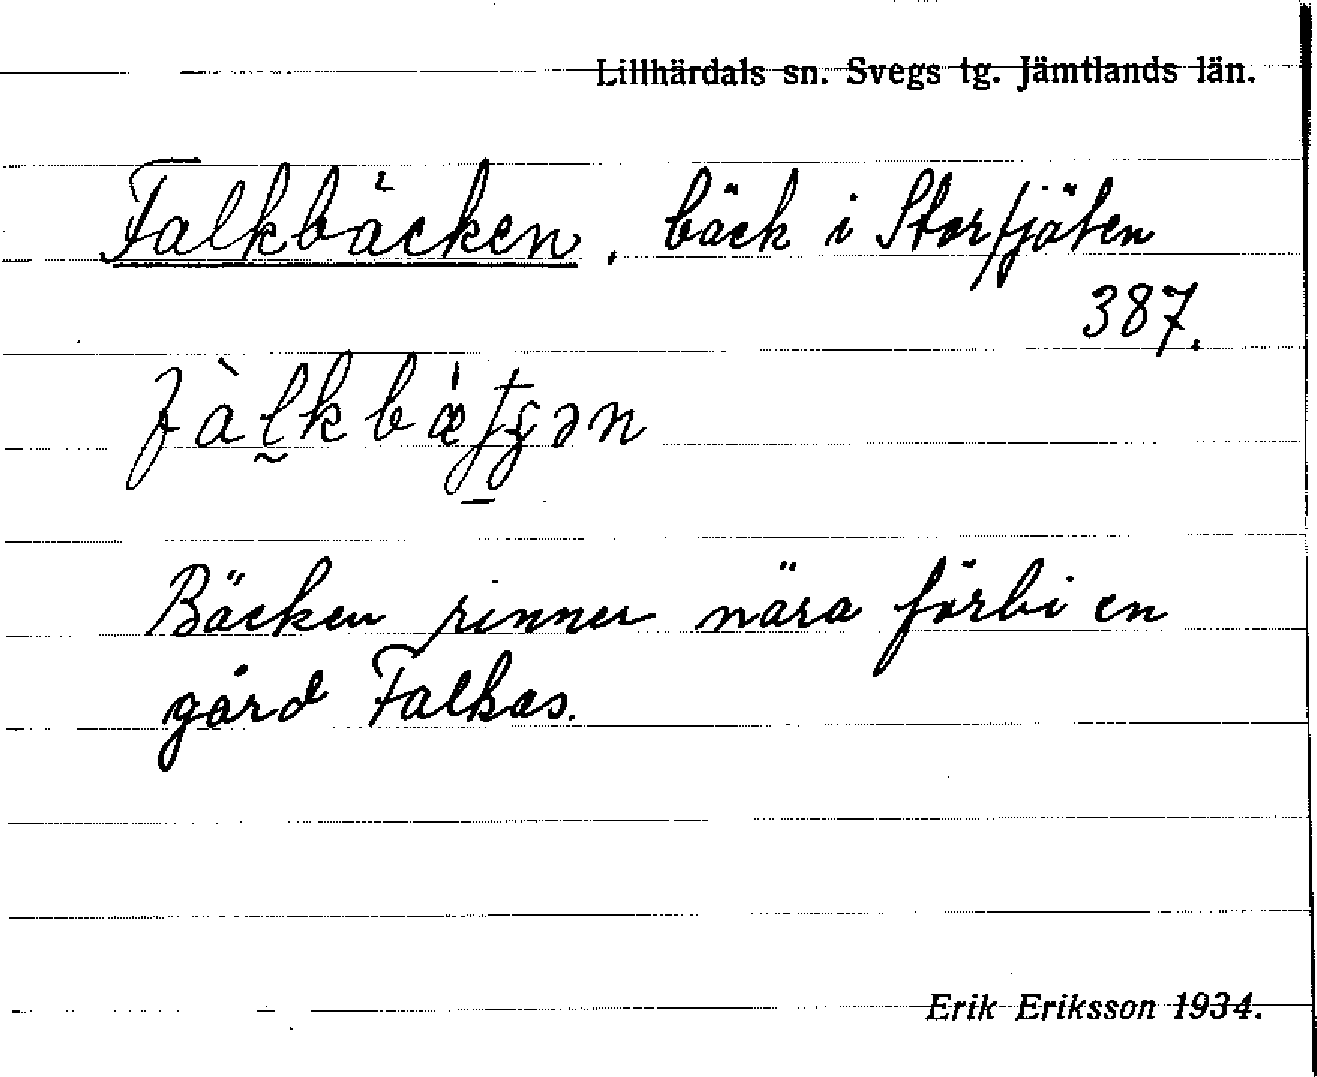 Lillhärdals sn. Svegs tg. Jämtlands län.
Falkbäcken, bäck i Storfjäten
387.
Bäcken rinner nära förbi en
gård Falkas.
Erik Eriksson 1934.